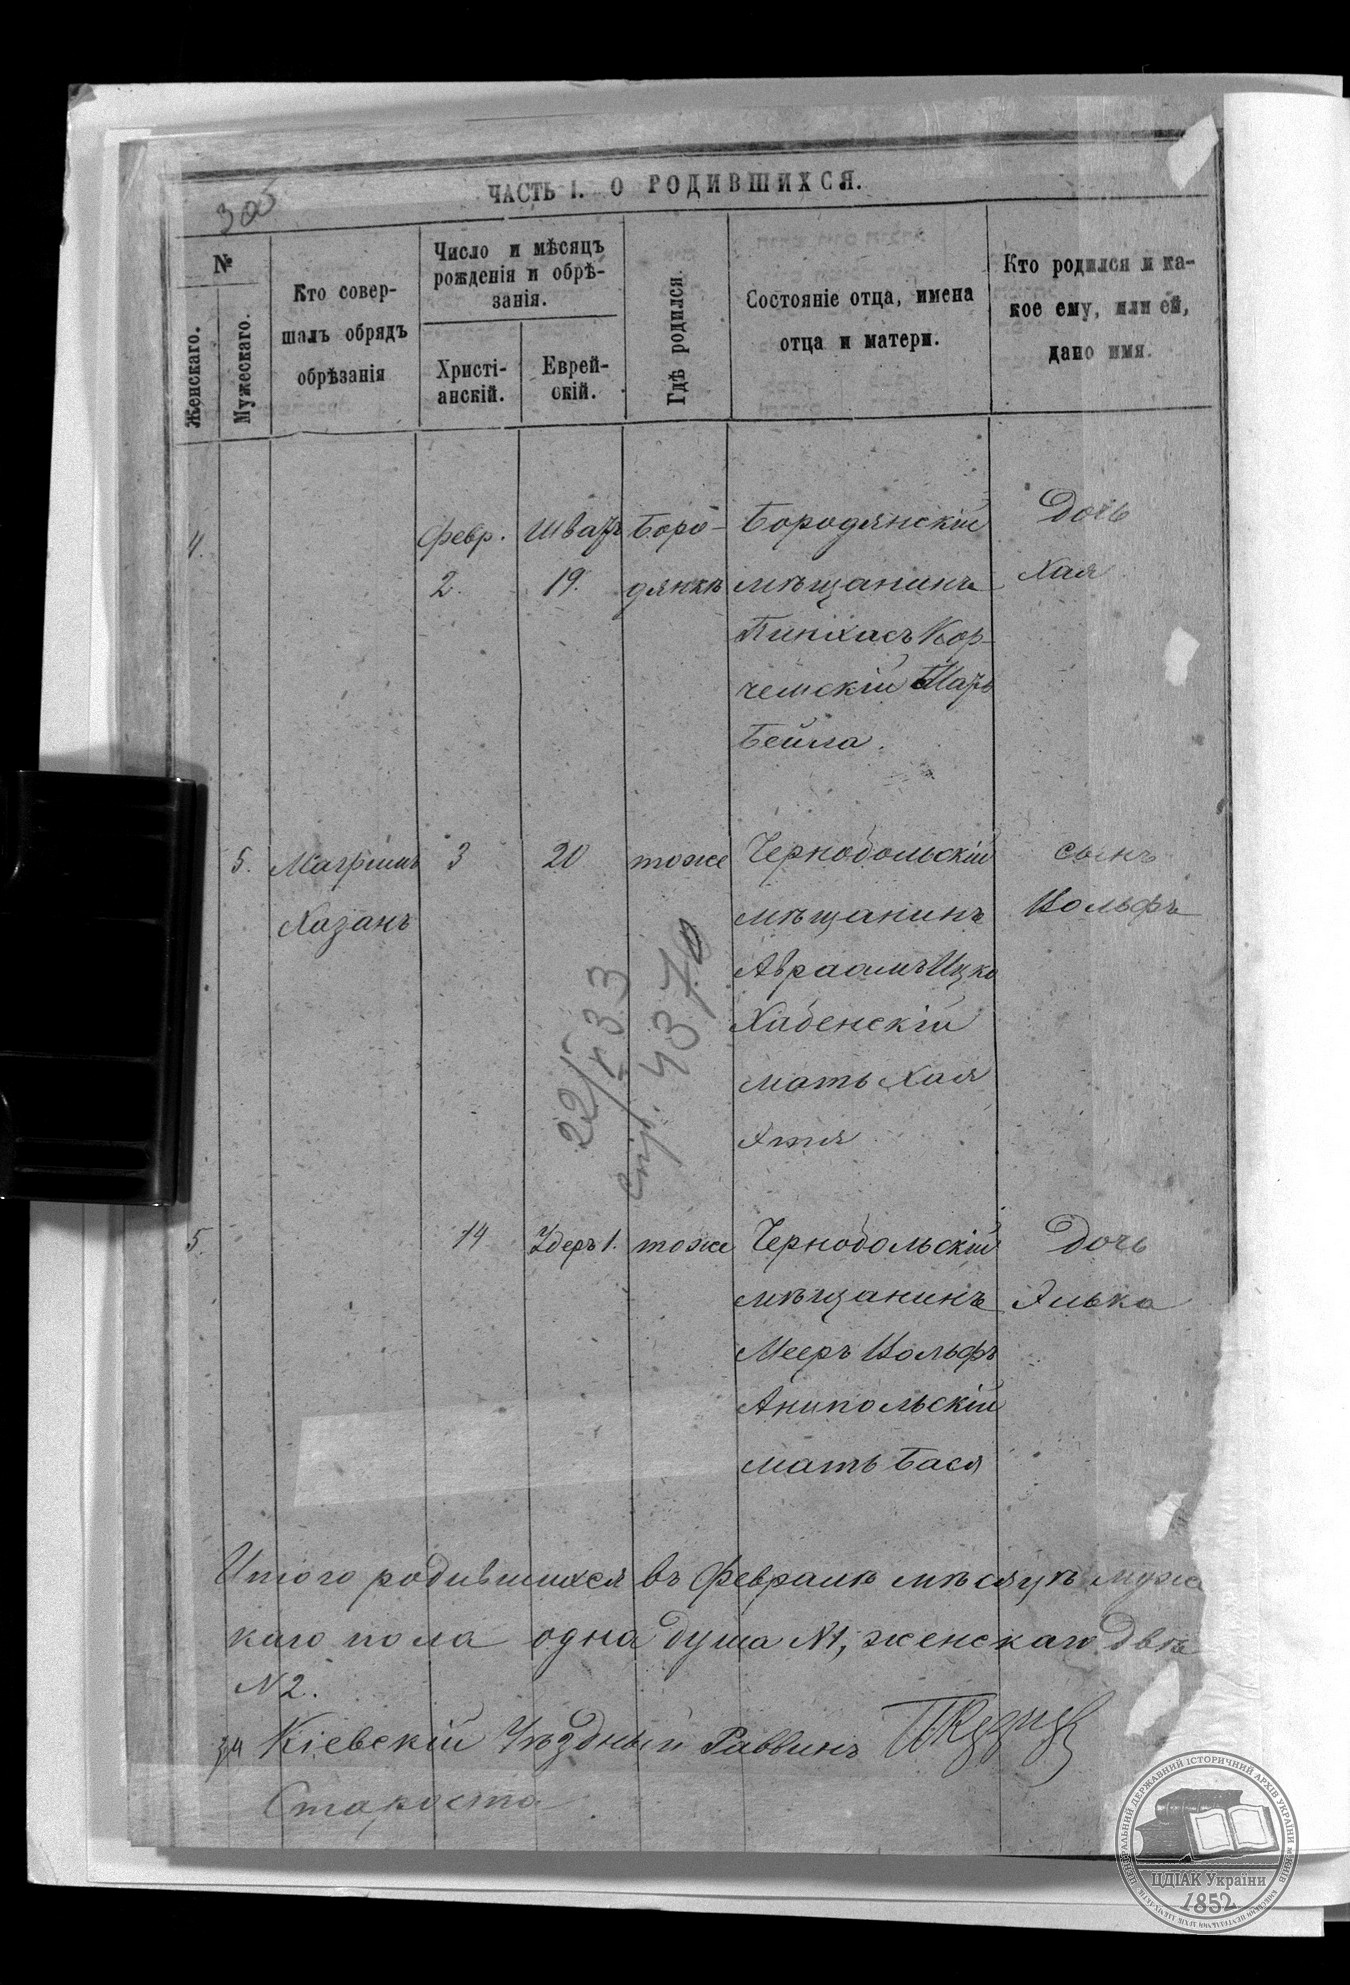 ЧАСТЬ I. О РОДИВШИХСЯ.
№
Женскаго.
Мужескаго.
Кто совер-
шалъ обрядъ
обрѣзанія
Число и мѣсяцъ
рожденія и обрѣ-
занія.
Христі-
анскій.
Еврей-
скій.
Гдѣ родился.
Состояніе отца, имена
отца и матери.
Кто родился и ка-
кое ему, или ей,
дано имя.
4.
Февр.
2.
Шватъ
19.
Боро-
дянкѣ
Бородянскій
мѣщанинъ
Пинхасъ Кор-
чемскій Мать
Бейла.
Дочь
Хая
5.
Хазанъ
3
20
тоже
Чернобольскій
мѣщанинъ
Авраамъ Ицко
Хабенскій
мать Хая
Этя
сынъ
Вольфъ
22/т 33
стр. 4370
5.
14
Адеръ 1.
тоже
Чернобольскій
мѣщанинъ
Мееръ Вольфъ
Анипольскій
мать Бася
Дочь
Элька
Итого родившихся въ Февралѣ мѣсяцѣ мужс
каго пола одна душа №1, женскаго двѣ
№2.
за Кіевскій Уѣздный Раввинъ
Староста
ЦЕНТРАЛЬНИЙ ДЕРЖАВНИЙ ІСТОРИЧНИЙ АРХІВ УКРАЇНИ
ЦДІАК України
1852